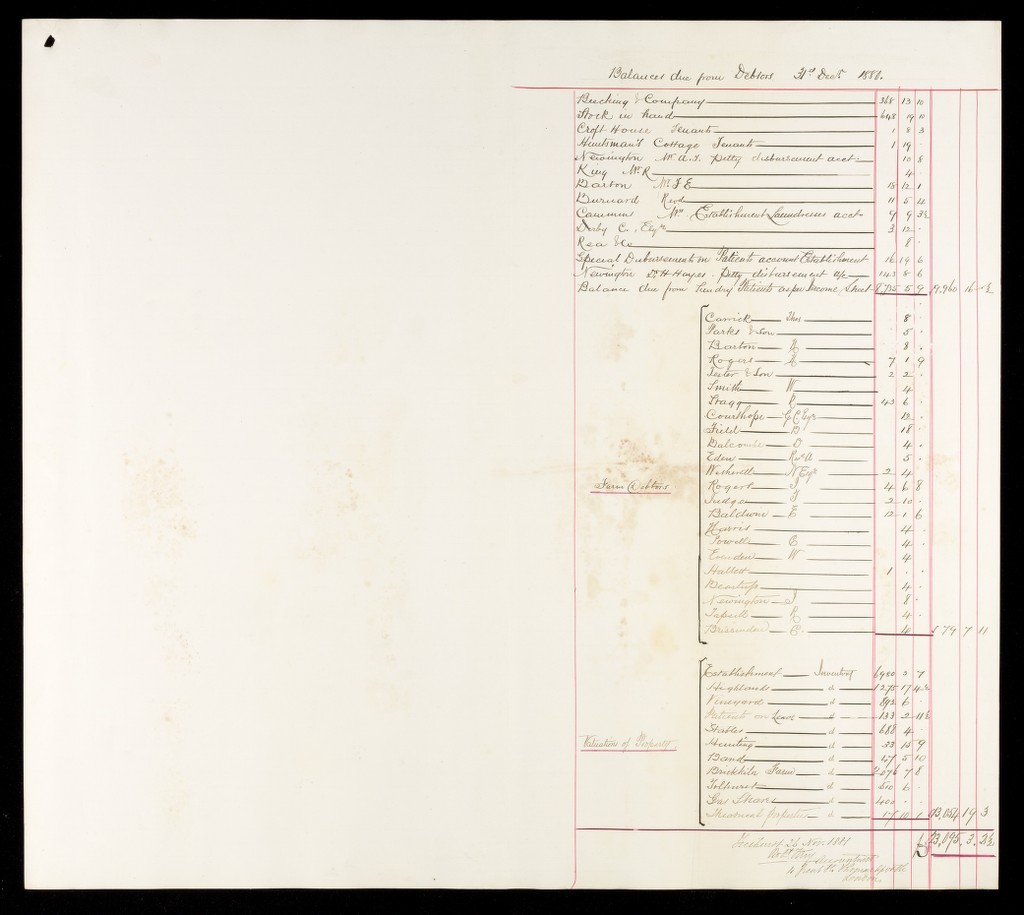 Balances due from Debtors 31st Decr 1880.
Beeching & Company 368 13 10
Stock in hand 648 19 10
Croft House Tenants 1 8 3
Huntsman's Cottage Tenants 1 19 .
Newington Mr A.S. Petty disbursement acct 10 8
King Mr R 4 .
Barton Mr J E 18 12 1
Burnard Revd 11 5 4
Cammons Mrs Establishment Laundresses acct 9 9 3½
Darby C. Esqre 3 12 .
Rea &c 8 .
Special Disbursements on Patients account Establishment 16 19 6
Newington Dr H Hayes. Petty disbursement a/c 143 8 6
Balance due from Sundry Patients as per Income Sheet 8735 5 9 9,960 16
Farm Debtors
Carrick Thos 8 .
Parks & Son 5 .
Barton 8 .
Rogers 7 1 9
Tester & Son 2 2 .
Smith W 4 .
Stagg R 43 6 .
Courthope G C Esqre 12 .
Field 18 .
Balcombe 4 .
Eden Revd A 5 .
Wetherell N Esqre 2 4
Rogers J 4 6 8
Judge 2 10 .
Baldwin E 12 1 6
Harris 4 .
Powell C 4 .
Evenden W 4 .
Hallett 1 . .
4 .
Newington J 8 .
Tapsell R 4 .
Brissenden C. 4 79 7 11
Valuations of Property
Establishment Inventory 6980 3 7
Highlands d 1275 17 4½
Vineyard d 892 6 .
Patients on Leave d 133 2 11½
Stables d 688 4 .
Hunting d 33 15 9
Band d 47 5 10
Brickkiln Farm d 2076 7 8
Tolhurst d 510 6 .
Gas Shares d 400 . .
Theatrical properties d 17 10 1 13,054 19 3
£ 23,095. 3. 2½
Ticehurst 26 Nov. 1881
Accountant
London